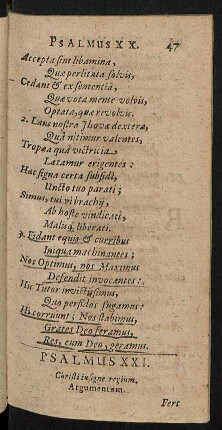 PSALMUS XX. 47
Accepta sint libamina,
Quæ perlitata solvis,
Cedant & ex sententiâ,
Quæ vota mente volvis,
Optata, quæ revolvis.
2. Laus nostra Jhovæ dexterâ,
Quâ nitimur valentes,
Tropæa quâ victricia
Lætamur erigentes:
Hac signa certa subsidî,
Uncto tuo parati;
Simus, tui vi brachij,
Ab hoste vindicati,
Malisq; liberati.
3. Fidant equis & curribus
Iniqua machinantes;
Nos Optimus, nos Maximus
Defendit invocantes:
Hic Tutor invictissimus,
Quo perfidos fugamus:
Hi corruunt; Nos stabimus,
Grates Deo feramus,
Res, cum Deo, geramus.
PSALMUS XXI.
Christi insigne regium,
Argumentum.
Fert